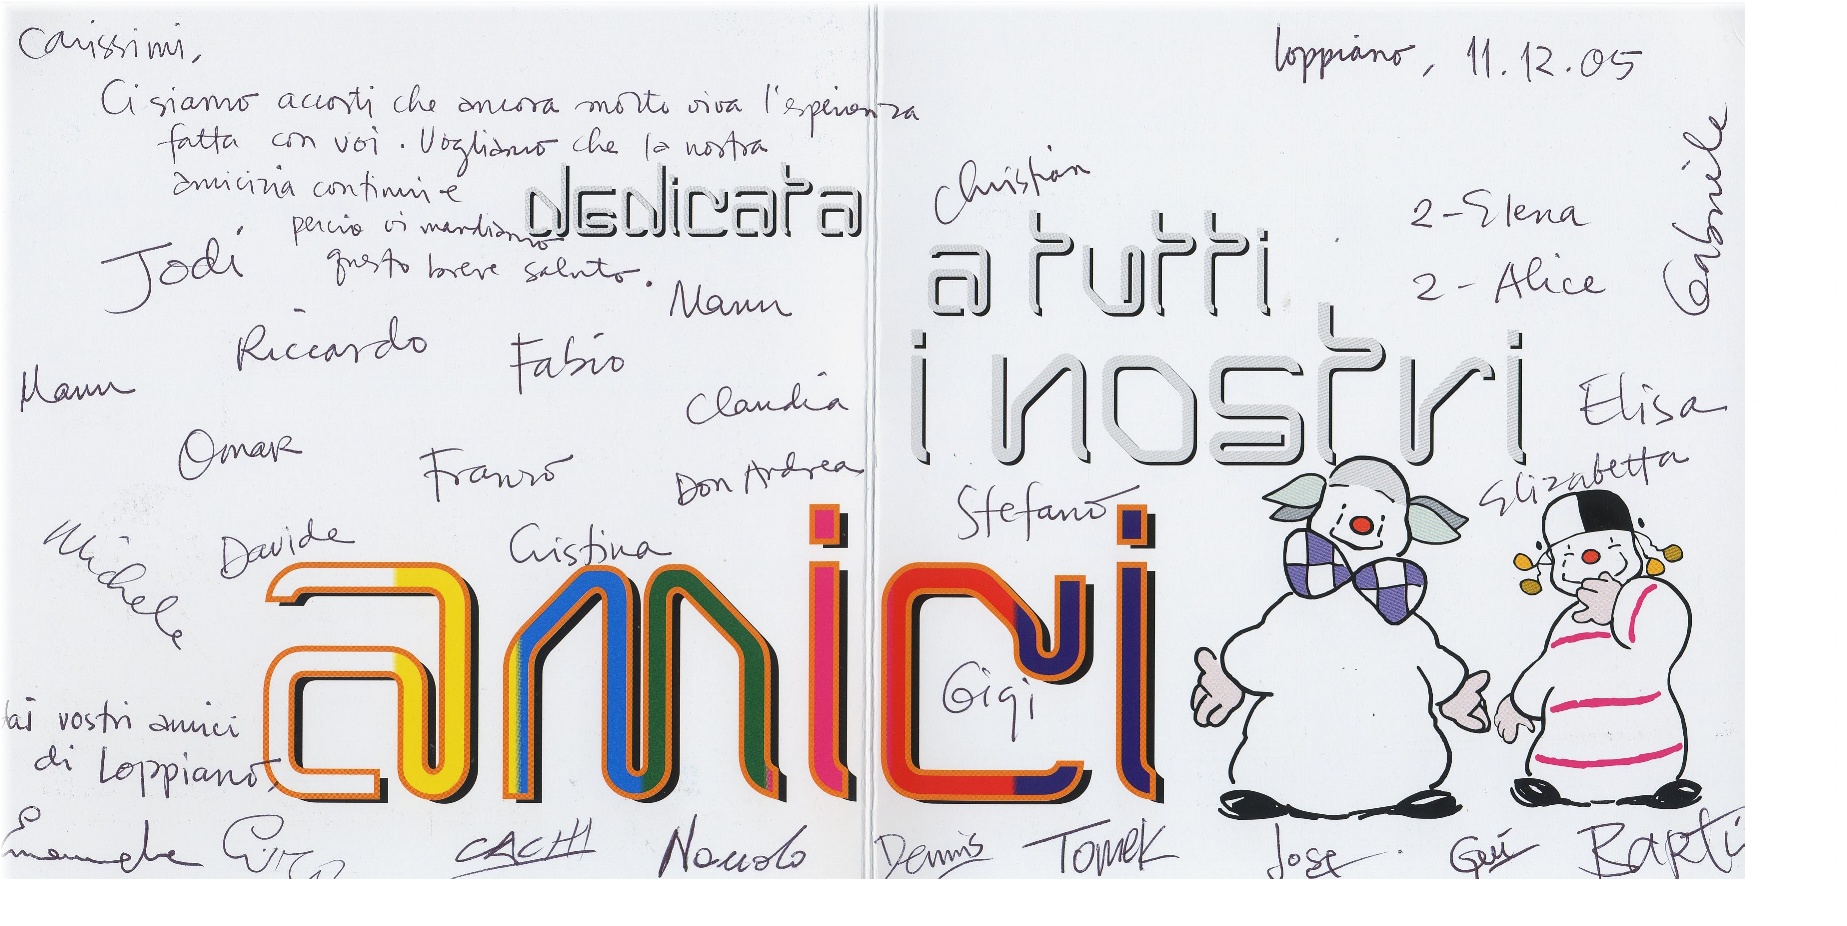 Carissimi,
Loppiano, 11.12.05
Ci siamo accorti che ancora molto viva l'esperienza
fatta con voi. Vogliamo che la nostra
amicizia continui e
perciò vi mandiamo
questo breve saluto.
dedicata
a tutti
i nostri
amici
Christian
2-Elena
2-Alice
Gabriele
Jodi
Riccardo
Fabio
Claudia
Elisa
Omar
Franzo
Don Andrea
Stefano
Elizabetta
Michele
Davide
Cristina
Gigi
dai vostri amici
di Loppiano,
CACHI
Dennis
Tomek
Jose
Bapti